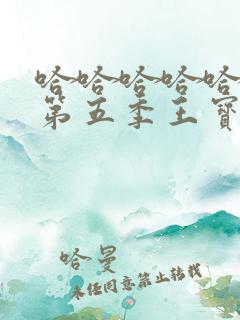 哈哈哈哈哈
第五季王寶
哈曼
未经同意禁止转载